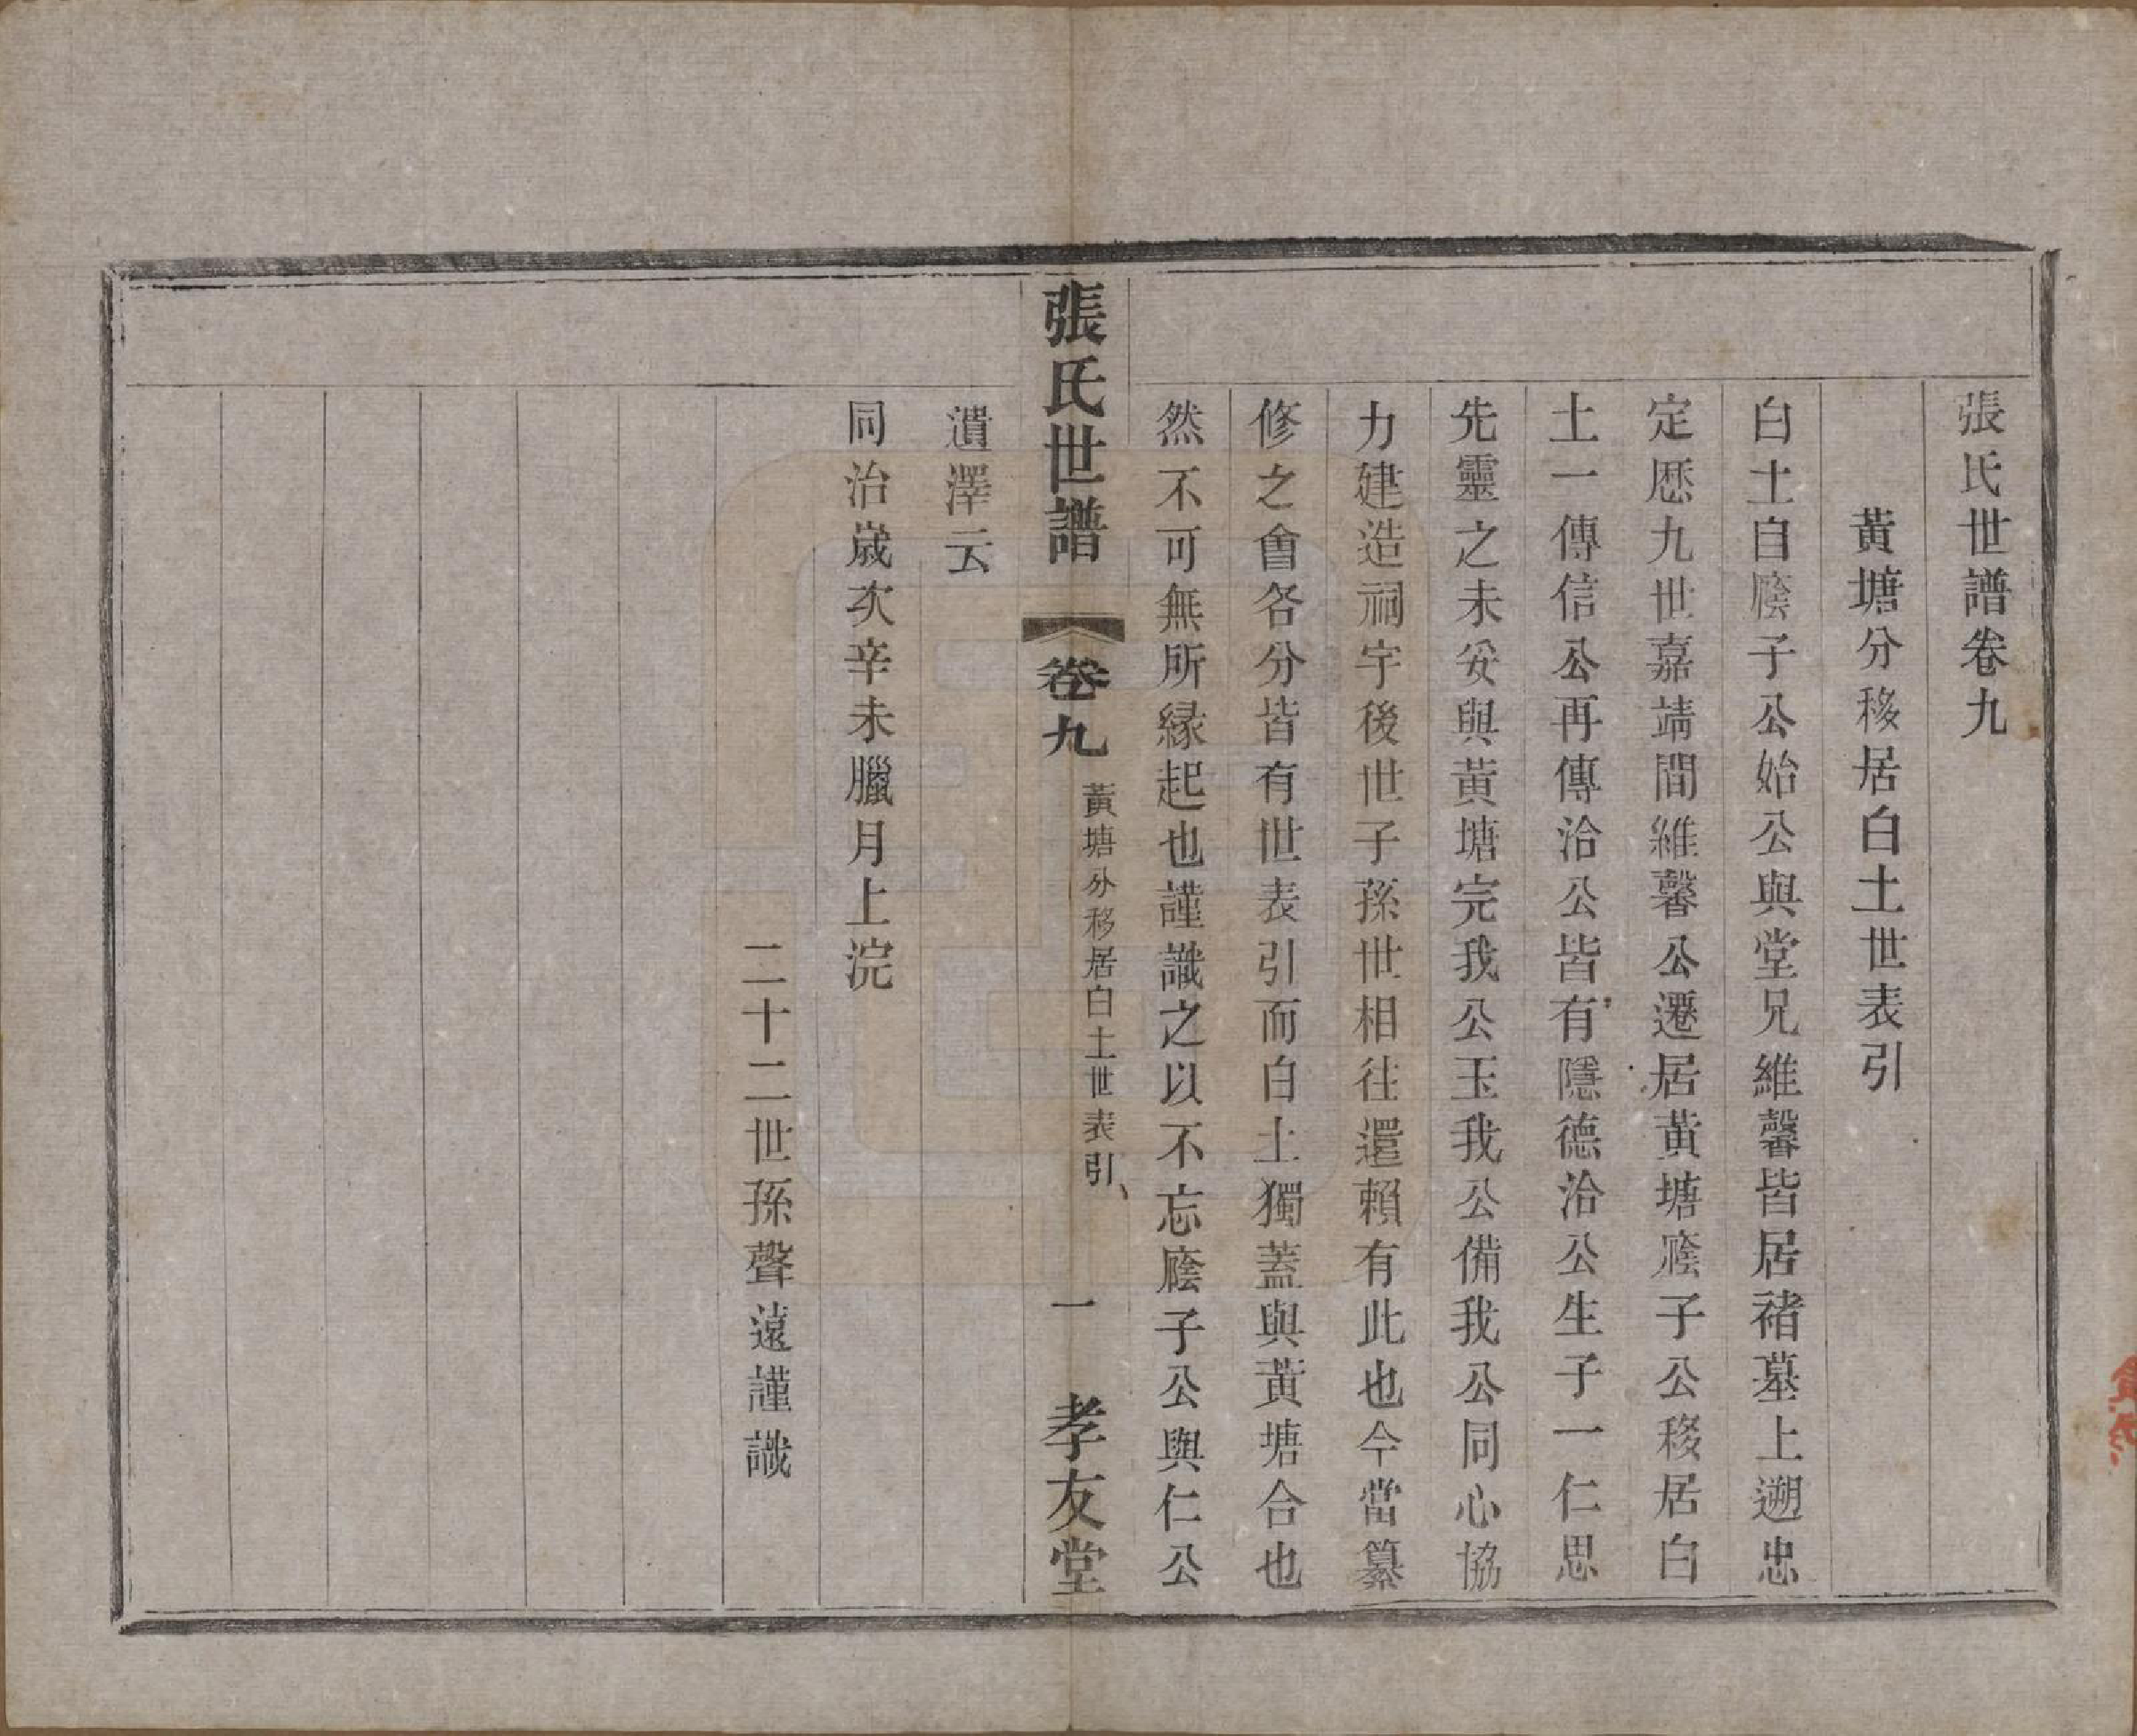 張氏世譜卷九
黃塘分移居白土世表引
白土自廕子公始公與堂兄維馨皆居褚墓上遡忠
定歷九世嘉靖間維馨公遷居黃塘廕子公移居白
土一傳信公再傳洽公皆有隱德洽公生子一仁思
先靈之未妥與黃塘完我公玉我公備我公同心協
力建造祠宇後世子孫世相往還賴有此也今當纂
修之會各分皆有世表引而白土獨蓋與黃塘合也
然不可無所縁起也謹識之以不忘廕子公與仁公
張氏世譜 卷九 黃塘分移居白土世表引 一 孝友堂
遺澤云
同治歲次辛未臘月上浣
二十二世孫聲遠謹識